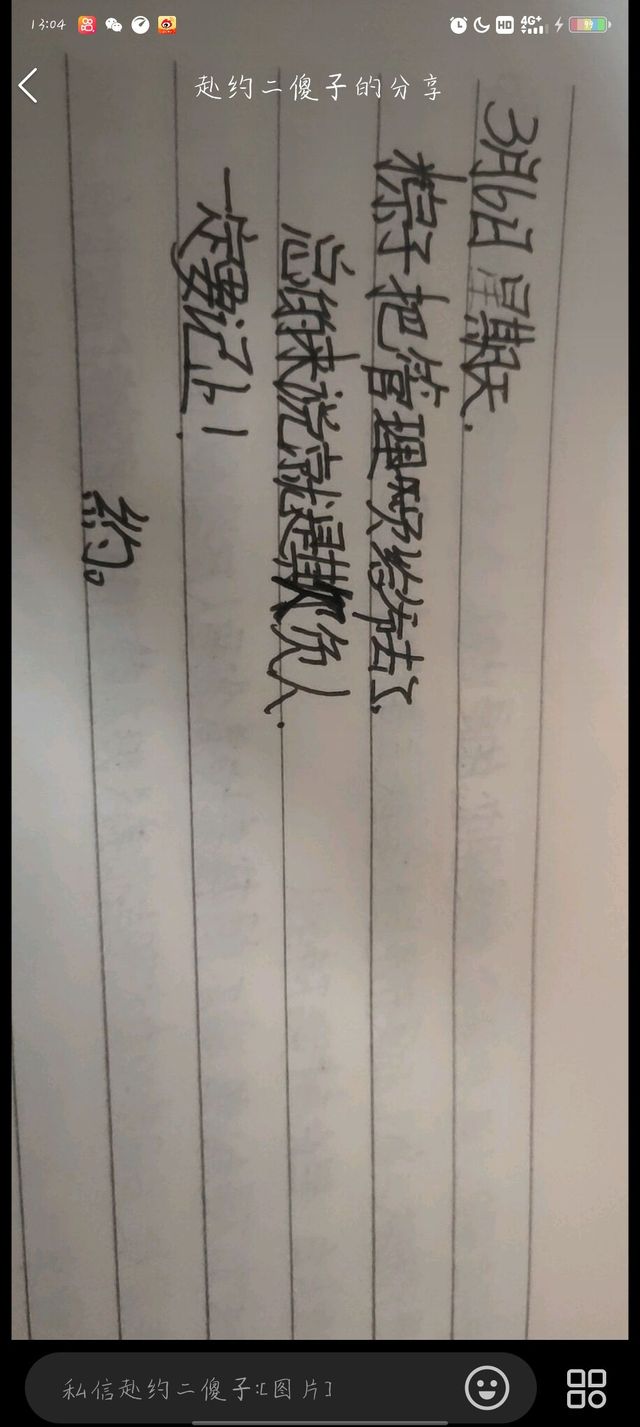 13:04
HD 4G+ 99
赴约二傻子的分享
3月6日星期天.
粽子把管理员给布去了,
总维来说就是欺负人.
一定要记上!
约。
私信赴约二傻子:[图片]